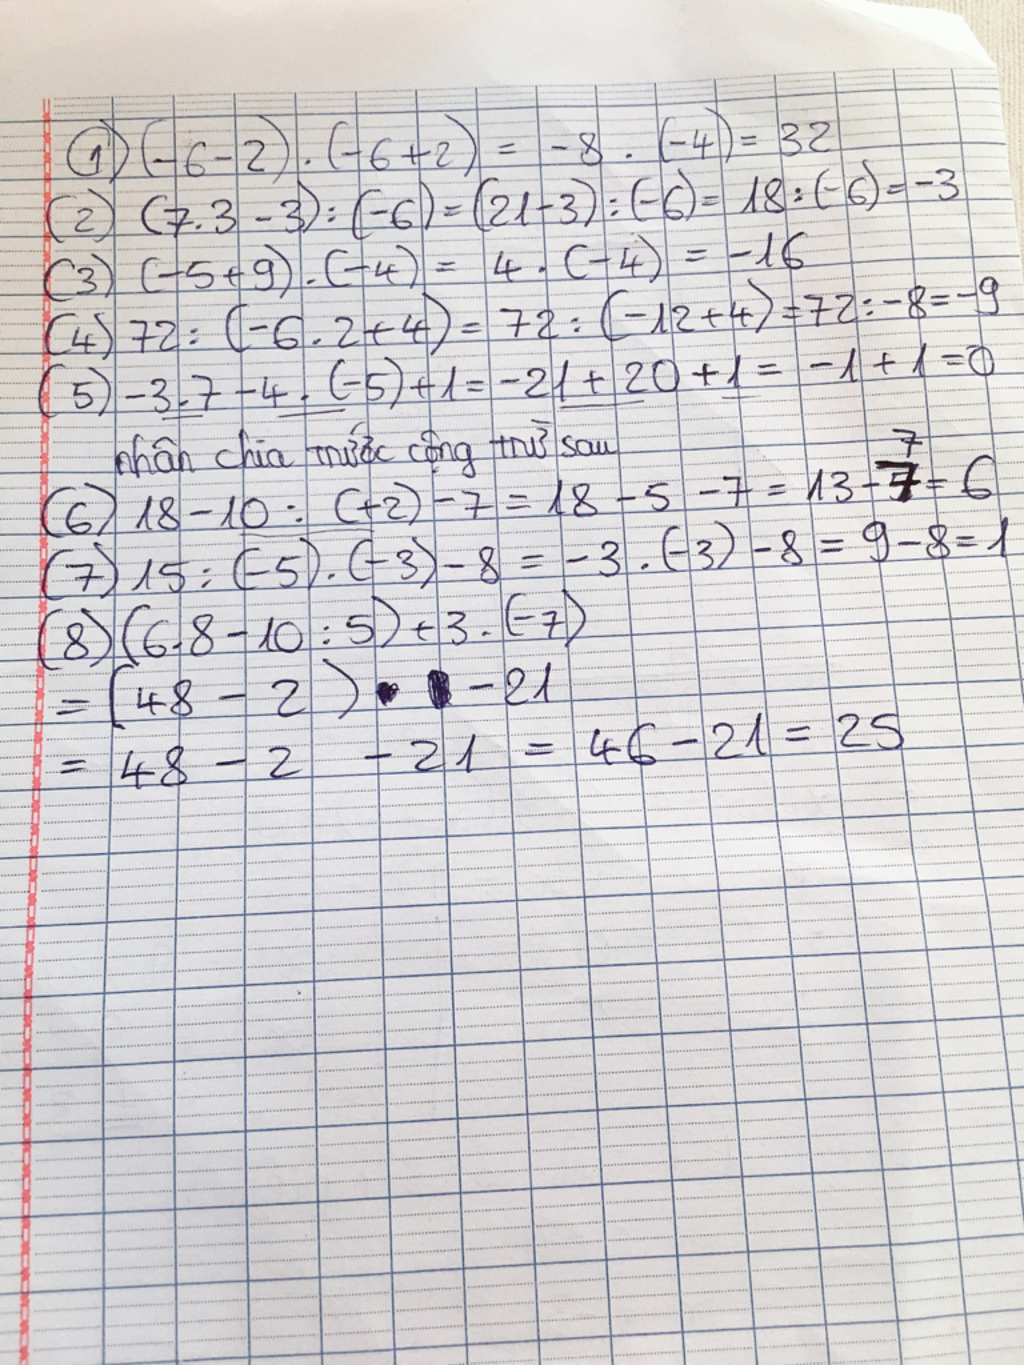 1) (-6-2).(-6+2) = -8 . (-4) = 32
(2) (7.3-3):(-6)=(21-3):(-6)= 18:(-6)=-3
(3) (-5+9).(-4) = 4.(-4) = -16
(4) 72:(-6.2+4)= 72:(-12+4)=72:-8=-9
(5) -3.7-4.(-5)+1= -21+20+1= -1+1=0
nhân chia trước cộng trừ sau
(6) 18-10:(+2)-7=18-5-7=13-7=6
(7) 15:(-5).(-3)-8 = -3.(-3)-8 = 9-8=1
(8) (6.8-10:5)+3.(-7)
= (48-2) -21
= 48-2 -21 = 46-21= 25